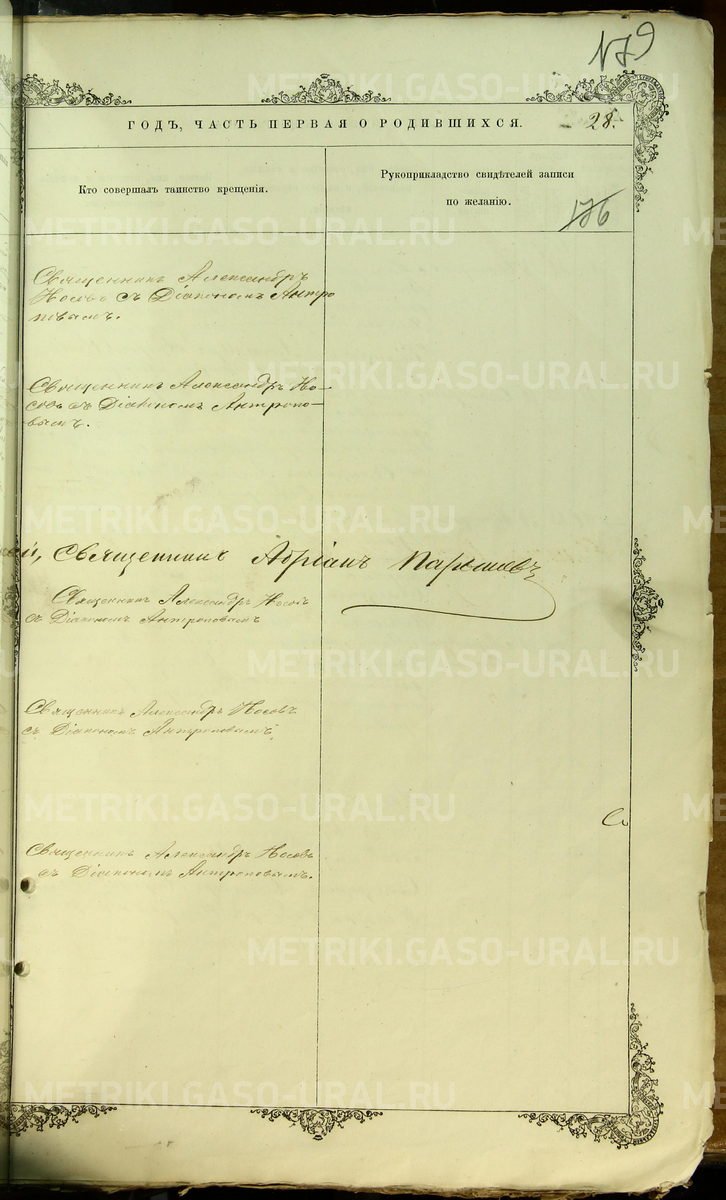 179
ГОДЪ, ЧАСТЬ ПЕРВАЯ О РОДИВШИХСЯ.
28.
Кто совершалъ таинство крещенія.
Рукоприкладство свидѣтелей записи
по желанію.
176
Священникъ Александръ
Носовъ съ Діакономъ Антро
повымъ.
Священникъ Александръ Но-
совъ съ Діакономъ Антропо-
вымъ.
Священникъ Адріанъ
Священникъ Александръ Носовъ
съ Діакономъ Антроповымъ
Священникъ Александръ Носовъ
съ Діакономъ Антроповымъ.
Священникъ Александръ Носовъ
съ Діакономъ Антроповымъ.
METRIKI.GASO-URAL.RU